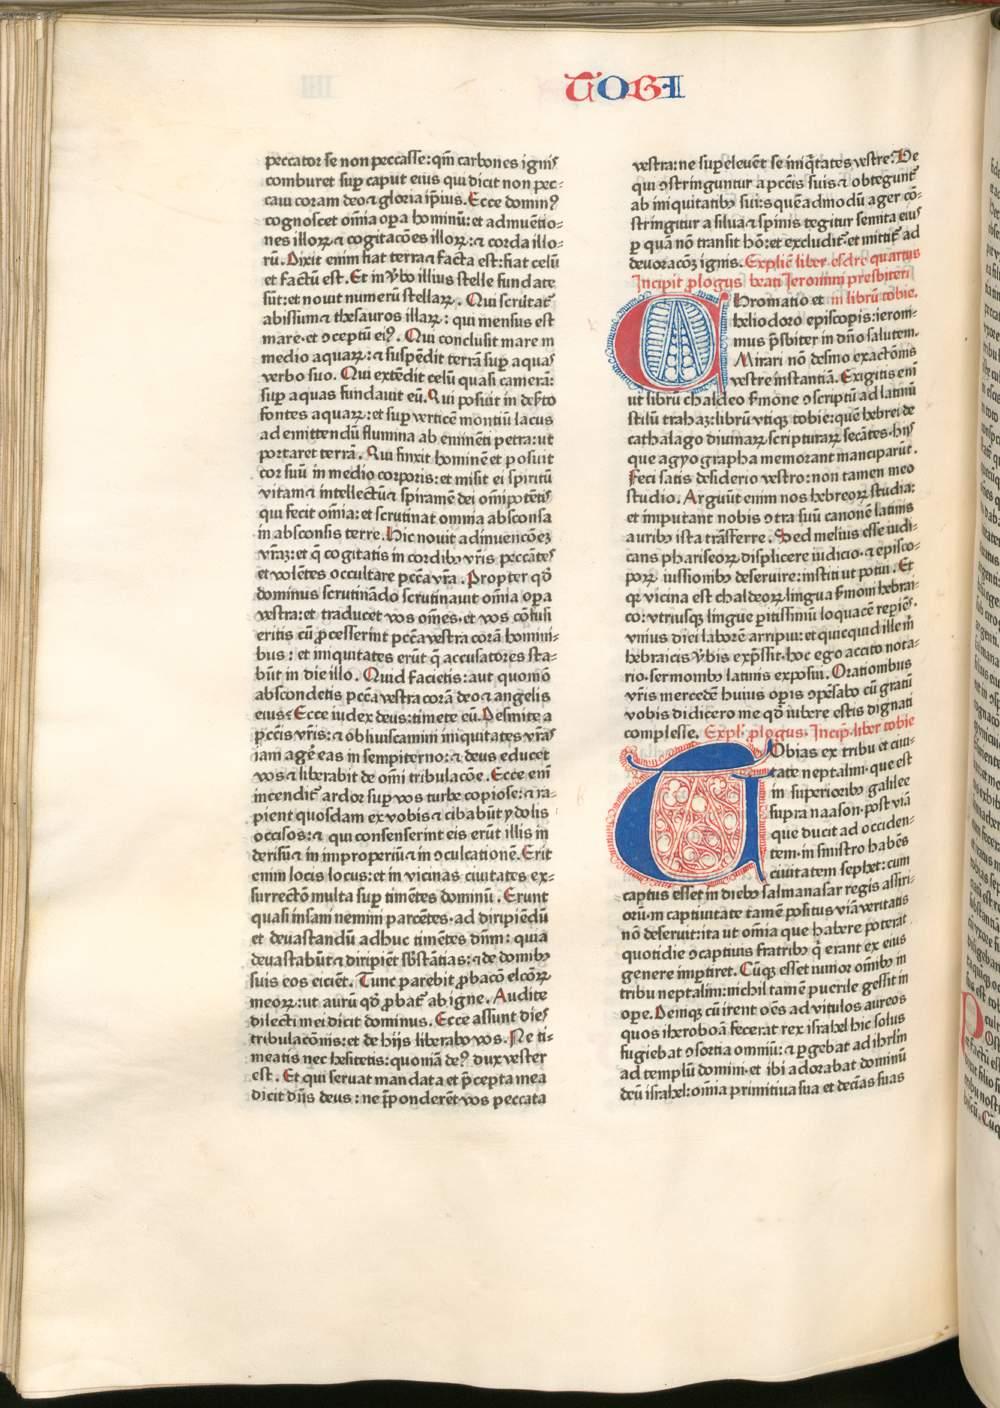 TOBI
peccator se non peccasse: qm̄ carbones ignis
comburet sup̱ caput eius qui dicit non pec⸗
caui coram deo ⁊ gloria ip̄ius. Ecce domin⁹
cognoscet om̄ia op̱a hominū: et admuētio⸗
nes illoꝝ ⁊ cogitacōes illoꝝ: ⁊ corda illo⸗
rū. Dixit enim fiat terra ⁊ facta est: fiat celū
et factū est. Et in v̄bo illius stelle fundate
sūt: et nouit numerū stellaꝝ. Qui scrutat᷑
abissum ⁊ thesauros illaꝝ: qui mensus est
mare· et ↄceptū ei⁹. Qui conclusit mare in
medio aquaꝝ: ⁊ suspēdit terrā sup̱ aquas
verbo suo. Qui extēdit celū quasi camerā:
sup̱ aquas fundauit eū. Qui posuit in des̄to
fontes aquaꝝ: et sup̱ verticē montiū lacus
ad emittendū flumina ab eminēti petra: ut
portaret terrā. Qui finxit hominē et posuit
cor suū in medio corporis: et misit ei spiritū
vitam ⁊ intellectū ⁊ spiramē dei om̄ipotētis
qui fecit om̄ia: et scrutinat omnia absconsa
in absconsis terre. Hic nouit adinuencōeꝫ
vr̄aꝫ: et q̄ cogitatis in cordibꝰ vr̄is peccātes
et volētes occultare pctā vr̄a. Propter qō
dominus scrutinādo scrutinauit om̄ia op̱a
vestra: et traducet vos om̄es· et vos cōfusi
eritis cū ꝓcesserint pctā vestra corā homini⸗
bus: et iniquitates erūt q̄ accusatores sta⸗
būt in die illo. Quid facietis: aut quomō
abscondetis pctā vestra corā deo ⁊ angelis
eius: Ecce iudex deus: timete eū. Desinite a
pctīs vr̄is: ⁊ obliuiscamini iniquitates vr̄as
iam agēꝫ eas in sempiterno: ⁊ deus educet
vos ⁊ liberabit de om̄i tribulacōe. Ecce enī
incendit᷑ ardor sup̱ vos turbe copiose: ⁊ ra⸗
pient quosdam ex vobis ⁊ cibabūt ydolis
occisos: ⁊ qui consenserint eis erūt illis in
derisū ⁊ in improperiū ⁊ in ↄculcationē. Erit
enim locis locus: et in vicinas ciuitates ex⸗
surrectō multa sup̱ timētes dominū. Erunt
quasi insani nemini parcētes· ad diripiēdū
et deuastandū adhuc timētes dn̄m: quia
deuastabūt ⁊ diripiēt sb̄stātias: ⁊ de domibꝰ
suis eos eiciēt. Tunc parebit ꝓbacō elcōꝝ
meoꝝ: ut aurū qō ꝓbat᷑ ab igne. Audite
dilecti mei dicit dominus. Ecce assunt dies
tribulacōnis: et de hijs liberabo vos. Ne ti⸗
meatis nec hesitetis: quoniā de⁹ dux vester
est. Et qui seruat mandata et p̄cepta mea
dicit dn̄s deus: ne p̄ponderēt vos peccata
vestra: ne sup̱eleuēt se iniq̄tates vestre. Ve
qui ↄstringuntur a pctīs suis ⁊ obtegunt᷑
ab iniquitatibꝰ suis: quēadmodū ager cō⸗
stringitur a silua ⁊ spinis tegitur semita eius
p̱ quā nō transit hō: et excludit᷑ et mittit᷑ ad
deuoracōꝫ ignis. Explic̄ liber esdre quartus
Incipit ꝓlogus beati Jeronimi presbiteri
Chromatio et in librū tobie.
heliodoro episcopis: ieroni⸗
mus p̄sbiter in dn̄o salutem.
Mirari nō desino exactōnis
vestre instantiā. Exigitis enī
ut librū chaldeo s̄mone ↄscriptū ad latinū
stilū trahaꝫ: librū vtiqꝫ tobie: quē hebrei de
cathalago diuinaꝝ scripturaꝝ secātes· hijs
que agyographa memorant manciparūt.
Feci satis desiderio vestro: non tamen meo
studio. Arguūt enim nos hebreoꝝ studia:
et imputant nobis ↄtra suū canonē latinis
auribꝰ ista trāsferre. Sed melius esse iudi⸗
cans phariseoꝝ displicere iudicio· ⁊ episco⸗
poꝝ iussionibꝰ deseruire: institi ut potui. Et
qꝛ vicina est chaldeoꝝ lingua s̄moni hebrai⸗
co: vtriusqꝫ lingue p̱itissimū loquacē rep̱iēs·
vnius diei laborē arripui: et quicquid ille m̄
hebraicis v̄bis exp̄ssit· hoc ego accito nota⸗
rio· sermonibꝰ latinis exposui. Orationibus
vr̄is mercedē huius op̱is ↄpēsabo cū gratū
vobis didicero me qō iubere estis dignati
complesse. Expl· ꝓlogus· Incip· liber tobie
Tobias ex tribu et ciui⸗
tate neptalim· que est
in superioribꝰ galilee
supra naason· post viā
que ducit ad occiden⸗
tem· in sinistro habēs
ciuitatem sephet: cum
captus esset in diebꝰ salmanasar regis assiri⸗
oru· in captiuitate tamē positus viā veritatis
nō deseruit: ita ut om̄ia que habere poterat
quotidie ↄcaptiuis fratribꝰ q̄ erant ex eius
genere imp̱tiret. Cūqꝫ esset iunior om̄ibꝰ in
tribu neptalim: nichil tamē puerile gessit in
op̱e. Deniqꝫ cū irent oēs ad vitulos aureos
quos iheroboā fecerat rex israhel hic solus
fugiebat ↄsortia omniū: ⁊ p̱gebat ad ihrl̄m
ad templū domini· et ibi adorabat dominū
deū israhel: om̄ia primitiua sua et decīas suas